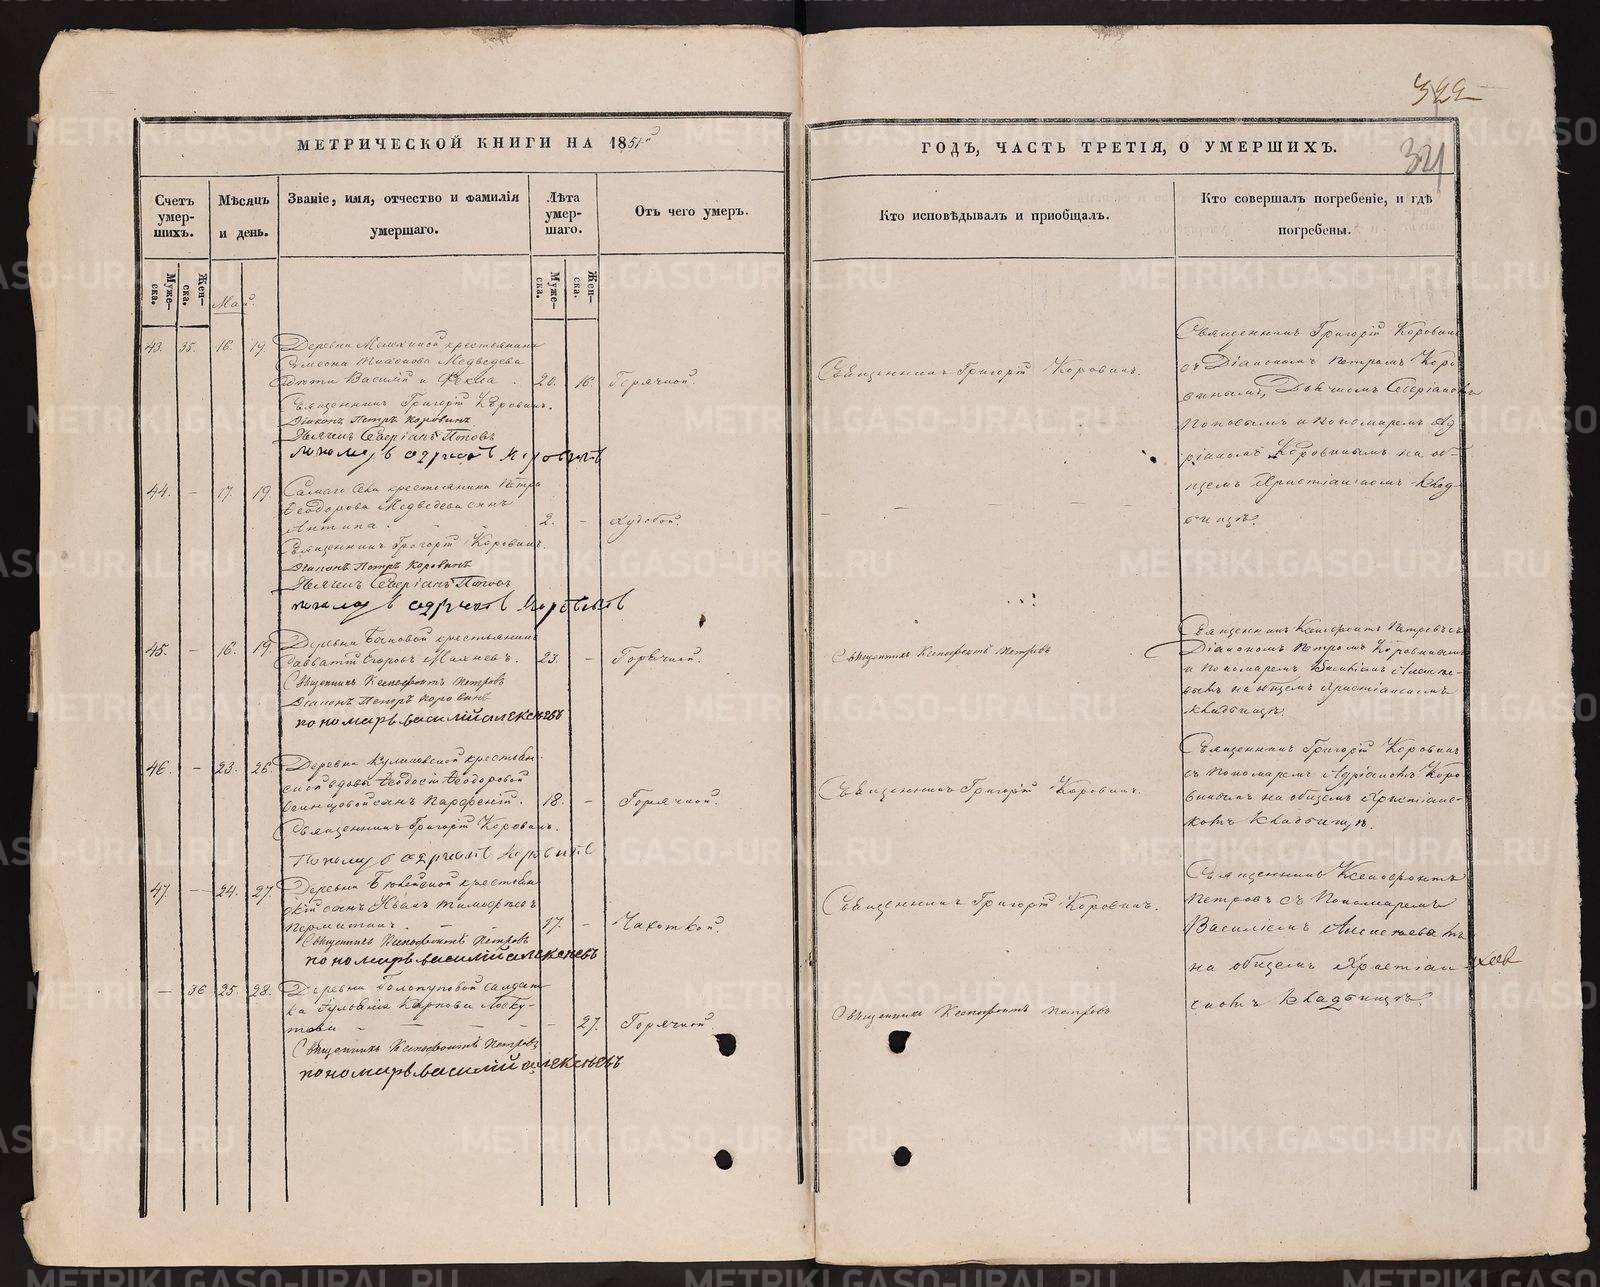 322
321
МЕТРИЧЕСКОЙ КНИГИ НА 1851й
ГОДЪ, ЧАСТЬ ТРЕТІЯ, О УМЕРШИХЪ.
Счетъ умер-шихъ.
Мѣсяцъ и день.
Званіе, имя, отчество и фамилія умершаго.
Лѣта умер-шаго.
Отъ чего умеръ.
Кто исповѣдывалъ и пріобщалъ.
Кто совершалъ погребеніе, и гдѣ погребены.
Муже-ска.
Жен-ска.
Май.
Муже-ска.
Жен-ска.
43. 35. 16. 19. Деревни крестьянина
Симеона Тихонова Медведева
дѣти Василій и Фекла. 20. 16. Горячкой.
Священникъ Григорій Коровинъ.
Діаконъ Петръ Коровинъ
Дьячекъ Северіанъ Поповъ
Священникъ Григорій Коровинъ.
Священникъ Григорій Коровинъ
съ Діакономъ Петромъ Коро
винымъ, Дьячкомъ Северіаномъ
Поповымъ и Пономаремъ Ад
ріаномъ Коровинымъ на об-
щемъ Христіанскомъ Клад
бищѣ.
44. - 17. 19. крестьянина Петра
Ѳеодорова Медведева сынъ
Антипа. 2. - Худобой.
Священникъ Григорій Коровинъ.
Діаконъ Петръ Коровинъ
Дьячекъ Северіанъ Поповъ
45. - 16. 19. Деревни Быковой крестьянинъ
Савватій Егоровъ 23. - Горячкой.
Священникъ Ксенофонтъ Петровъ
Діаконъ Петръ Коровинъ
пономарь василій алексѣевъ
Священникъ Ксенофонтъ Петровъ
Священникъ Ксенофонтъ Петровъ съ
Діакономъ Петромъ Коровинымъ
и Пономаремъ Василіемъ Алексѣе-
вымъ на общемъ Христіанскомъ
Кладбищѣ.
46. - 23. 26. Деревни крестьян-
ской вдовы Ѳеодосіи Ѳеодоровой
сынъ Парфеній. 18. - Горячкой.
Священникъ Григорій Коровинъ.
Священникъ Григорій Коровинъ.
Священникъ Григорій Коровинъ
съ Пономаремъ Адріаномъ Коро
винымъ на общемъ Христіанс-
комъ Кладбищѣ.
47. - 24. 27. Деревни крестьян
скій сынъ Иванъ Тимофѣевъ
Пермитинъ. 17. - Чахоткой.
Священникъ Ксенофонтъ Петровъ
пономарь василій алексѣевъ
Священникъ Григорій Коровинъ.
Священникъ Ксенофонтъ
Петровъ съ Пономаремъ
Василіемъ Алексѣевымъ
на общемъ Христіан
скомъ Кладбищѣ.
- 36 25. 28. Деревни Голопуповой солдат
ка Карпова
- 27. Горячкой
Священникъ Ксенофонтъ Петровъ
пономарь василій алексѣевъ
Священникъ Ксенофонтъ Петровъ
METRIKI.GASO-URAL.RU